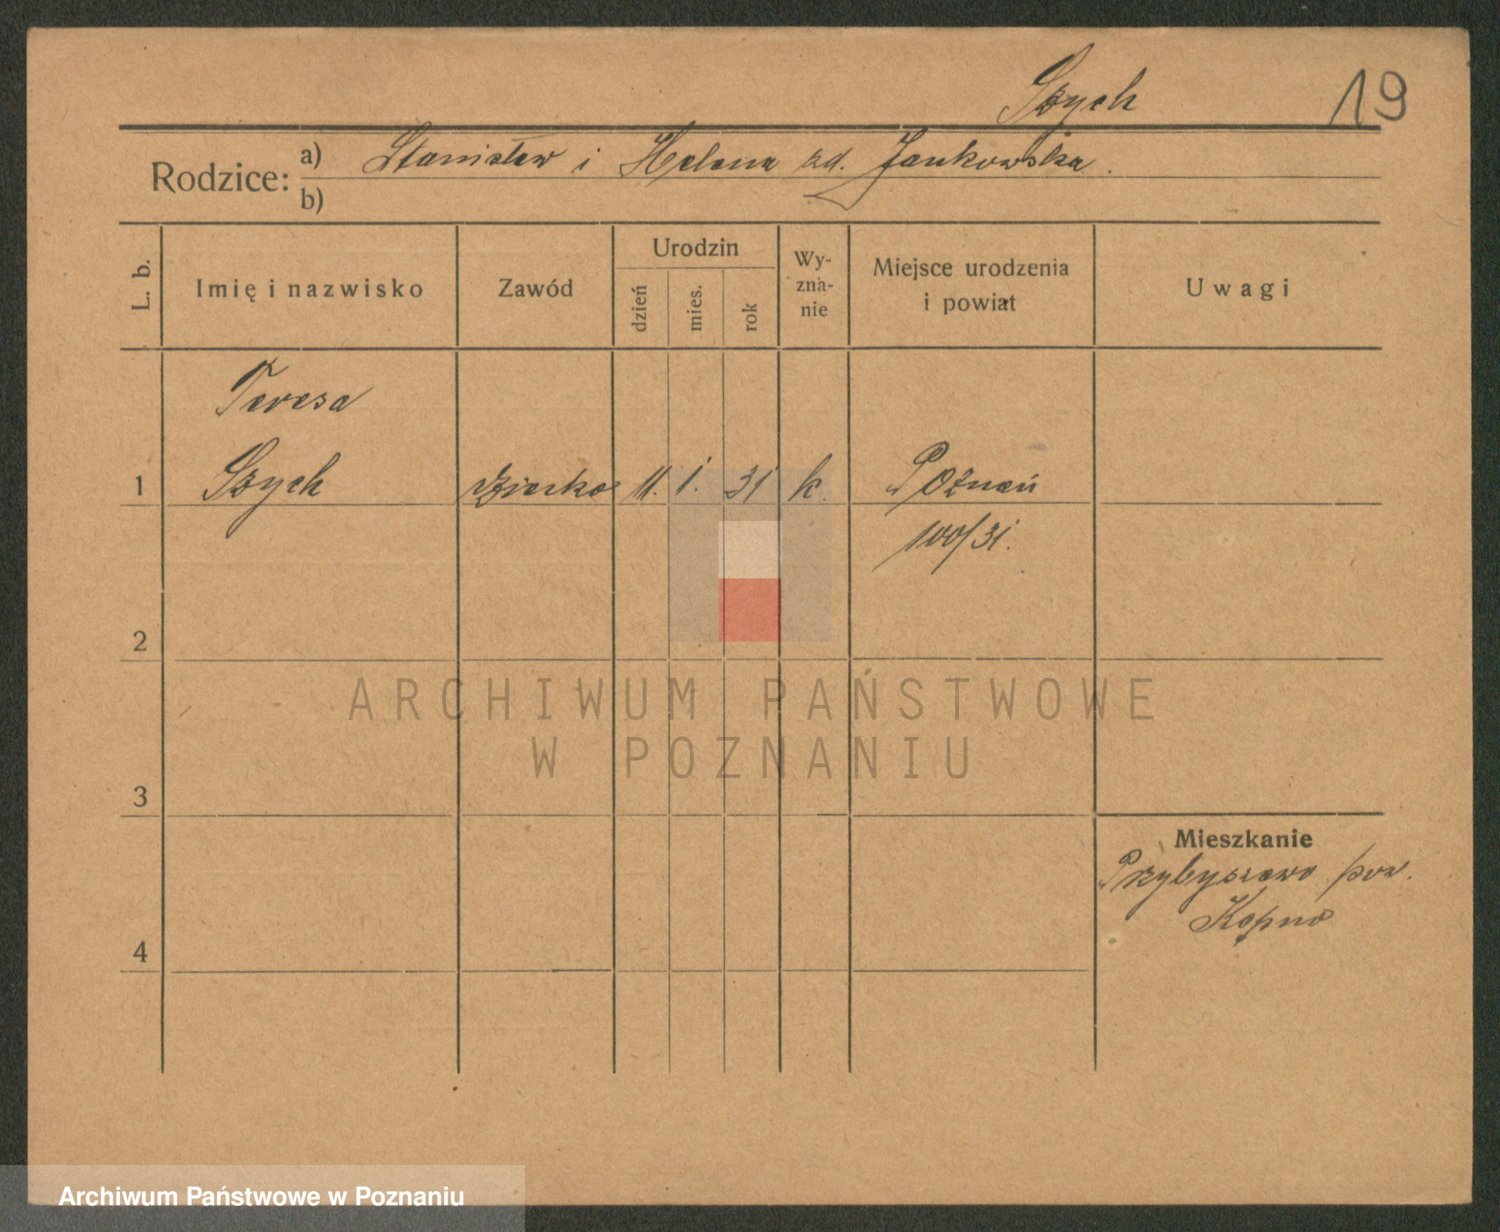 Szych
19
Rodzice: a) Stanisław i Helena zd. Jankowska.
b)
L. b.
Imię i nazwisko
Zawód
Urodzin
dzień
mies.
rok
Wy-
zna-
nie
Miejsce urodzenia
i powiat
Uwagi
Teresa
1 Szych dziecko 11. 1. 31 k. Poznań
100/31.
2
3
4
Mieszkanie
Przybyszewo pow.
Kępno
ARCHIWUM PAŃSTWOWE
W POZNANIU
Archiwum Państwowe w Poznaniu